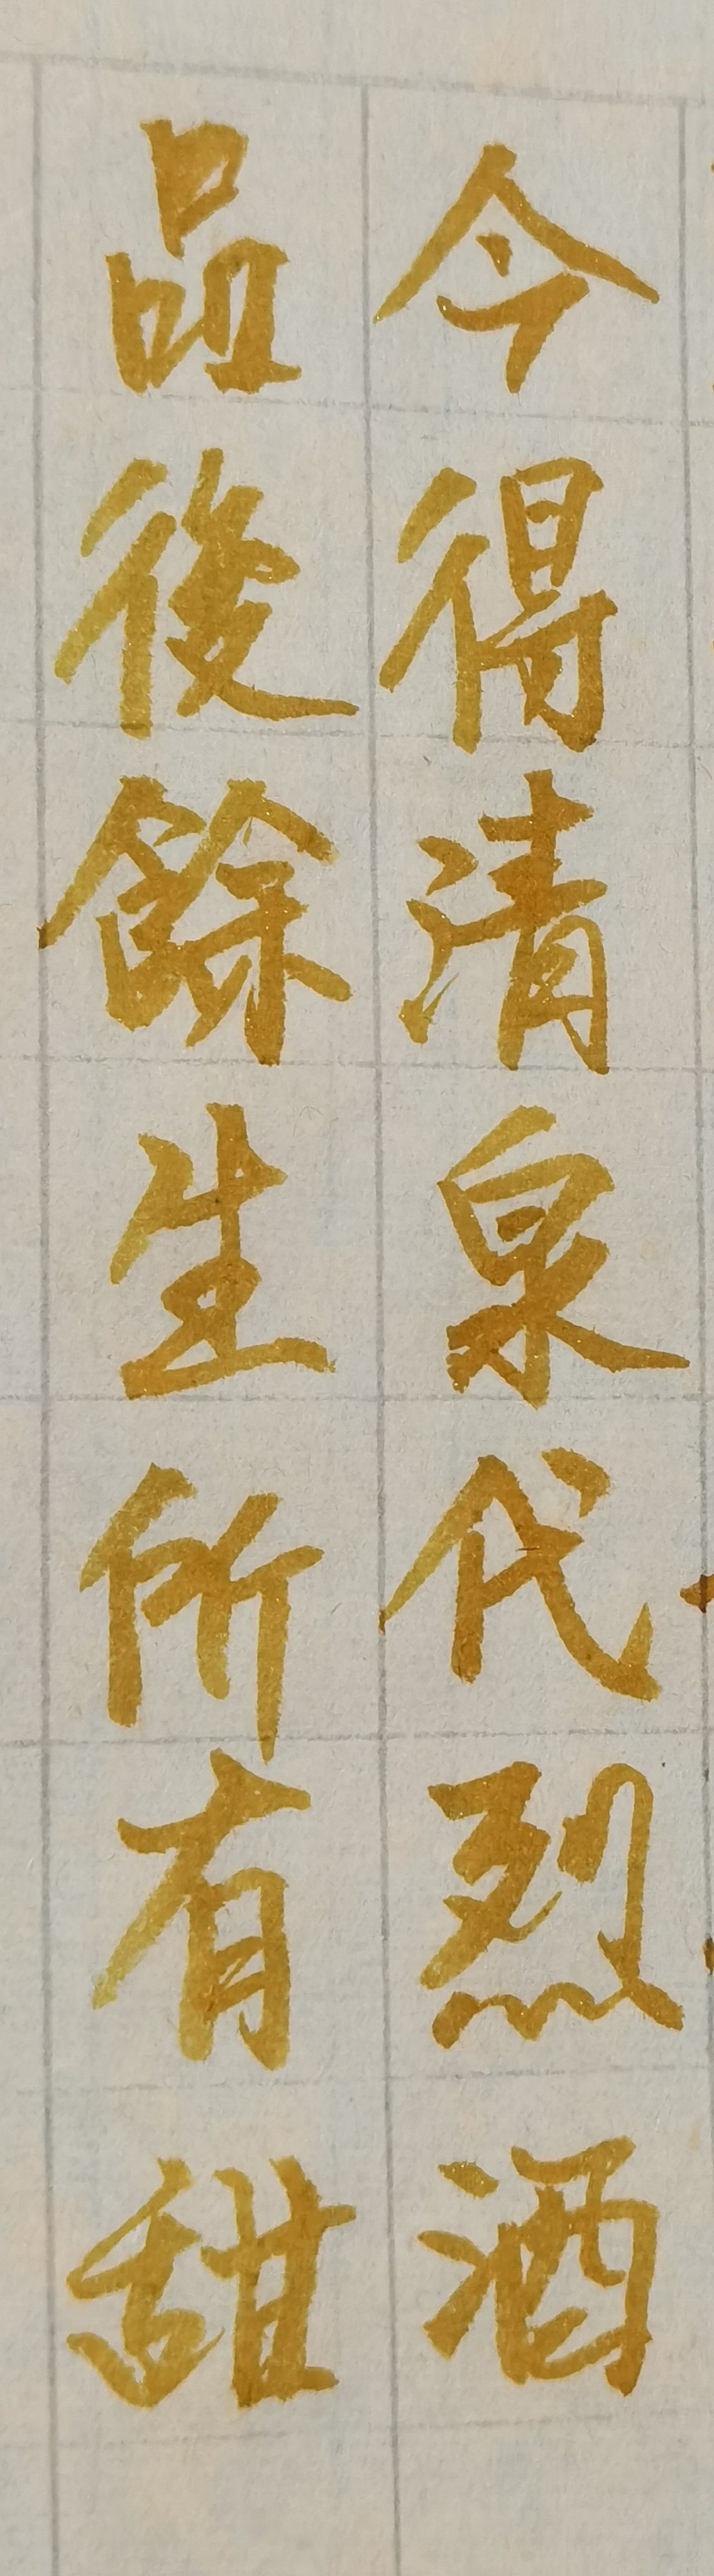 今得清泉代烈酒
品後餘生所有甜